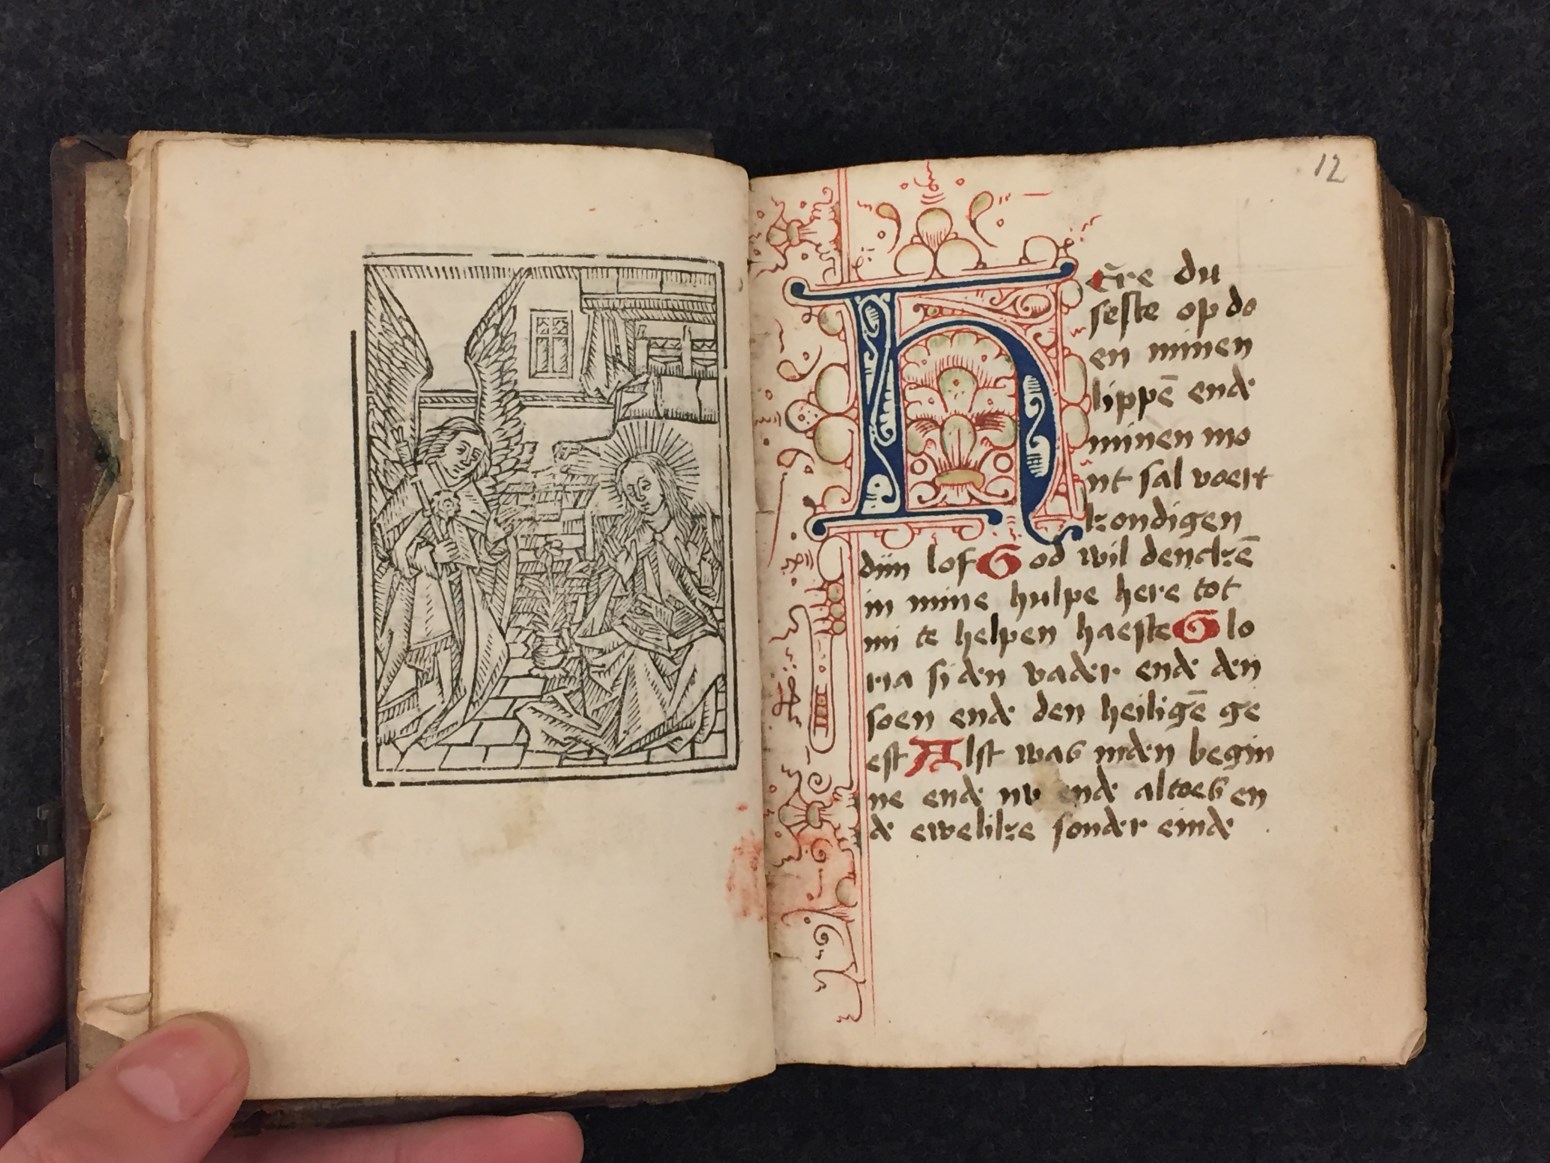 12
Hēre du
selste op do
en minen
lippē ende
minen mo
nt sal voert
kondigen
diin lof God wil denckē
in mine hulpe here tot
mi te helpen haeste Glo
ria si den vader ende den
soen ende den heiligē ge
est Alst was inden begin
ne ende nv ende altoes en
de ewelike sonder einde